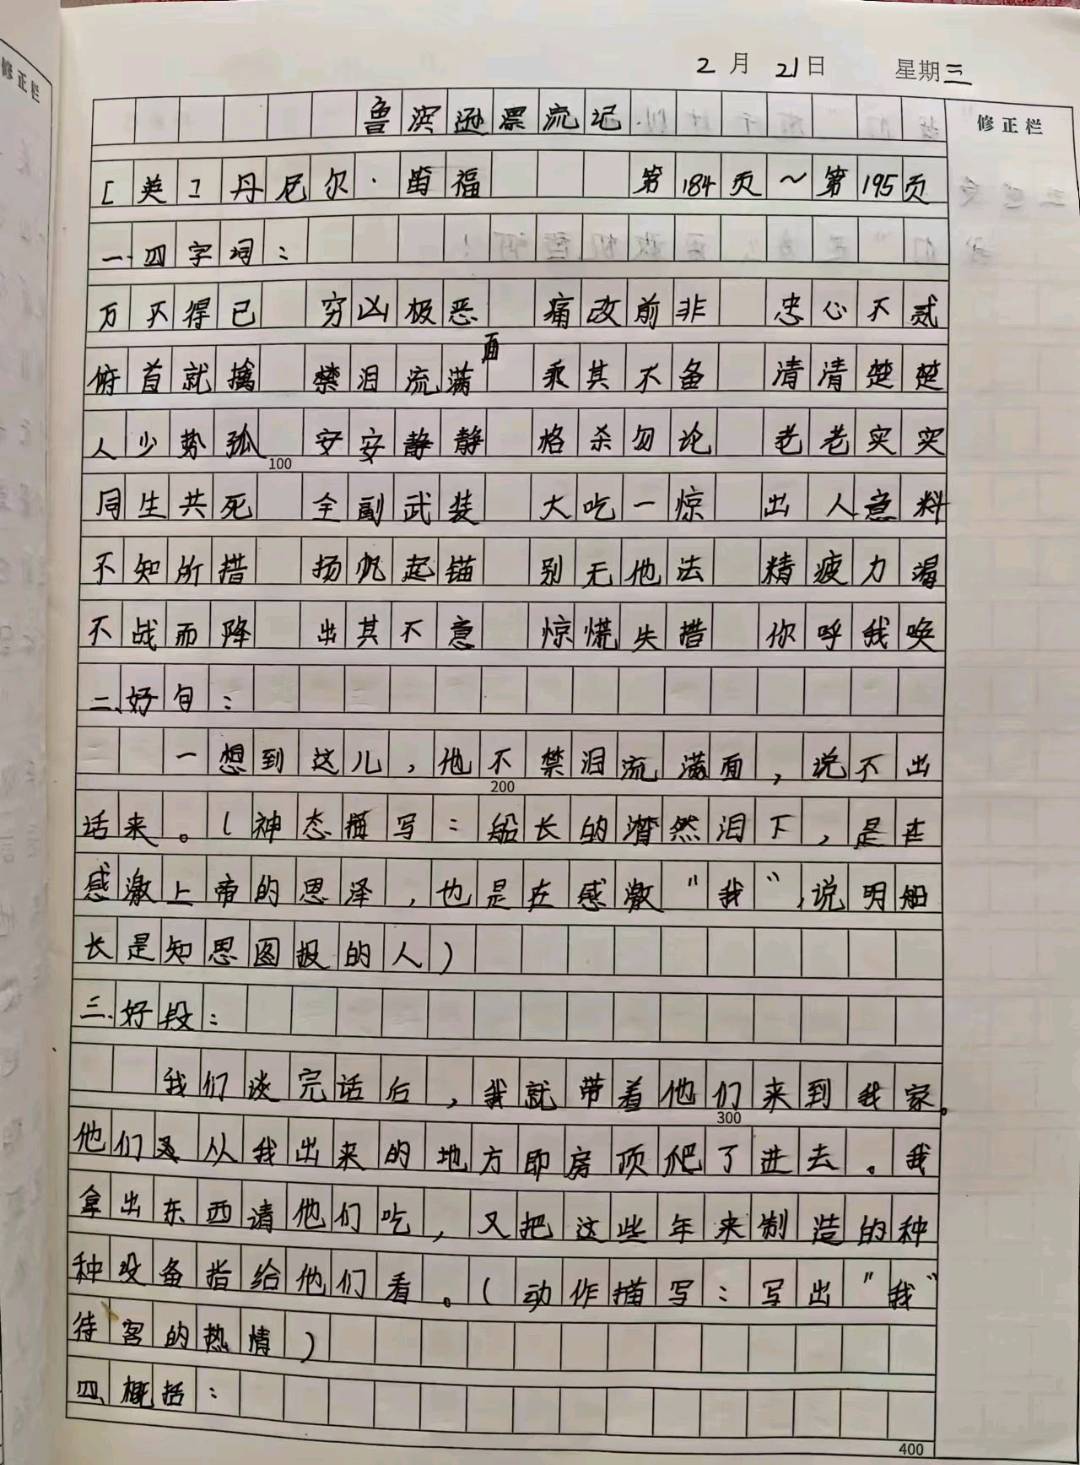 修正栏
2月21日 星期三
鲁滨逊漂流记
修正栏
[美]丹尼尔·笛福 第184页~第195页
一.四字词:
万不得已 穷凶极恶 痛改前非 忠心不贰
俯首就擒 禁泪流满面 乘其不备 清清楚楚
人少势孤 安安静静 格杀勿论 老老实实
100
同生共死 全副武装 大吃一惊 出人意料
不知所措 扬帆起锚 别无他法 精疲力渴
不战而降 出其不意 惊慌失措 你呼我唤
二、好句:
一想到这儿,他不禁泪流满面,说不出
200
话来。(神态描写:船长的潸然泪下,是在
感激上帝的恩泽,也是在感激“我”,说明船
长是知恩图报的人)
三.好段:
我们谈完话后,我就带着他们来到我家。
300
他们又从我出来的地方即房顶爬了进去。我
拿出东西请他们吃,又把这些年来制造的种
种设备指给他们看。(动作描写:写出“我”
待客的热情)
四、概括:
400